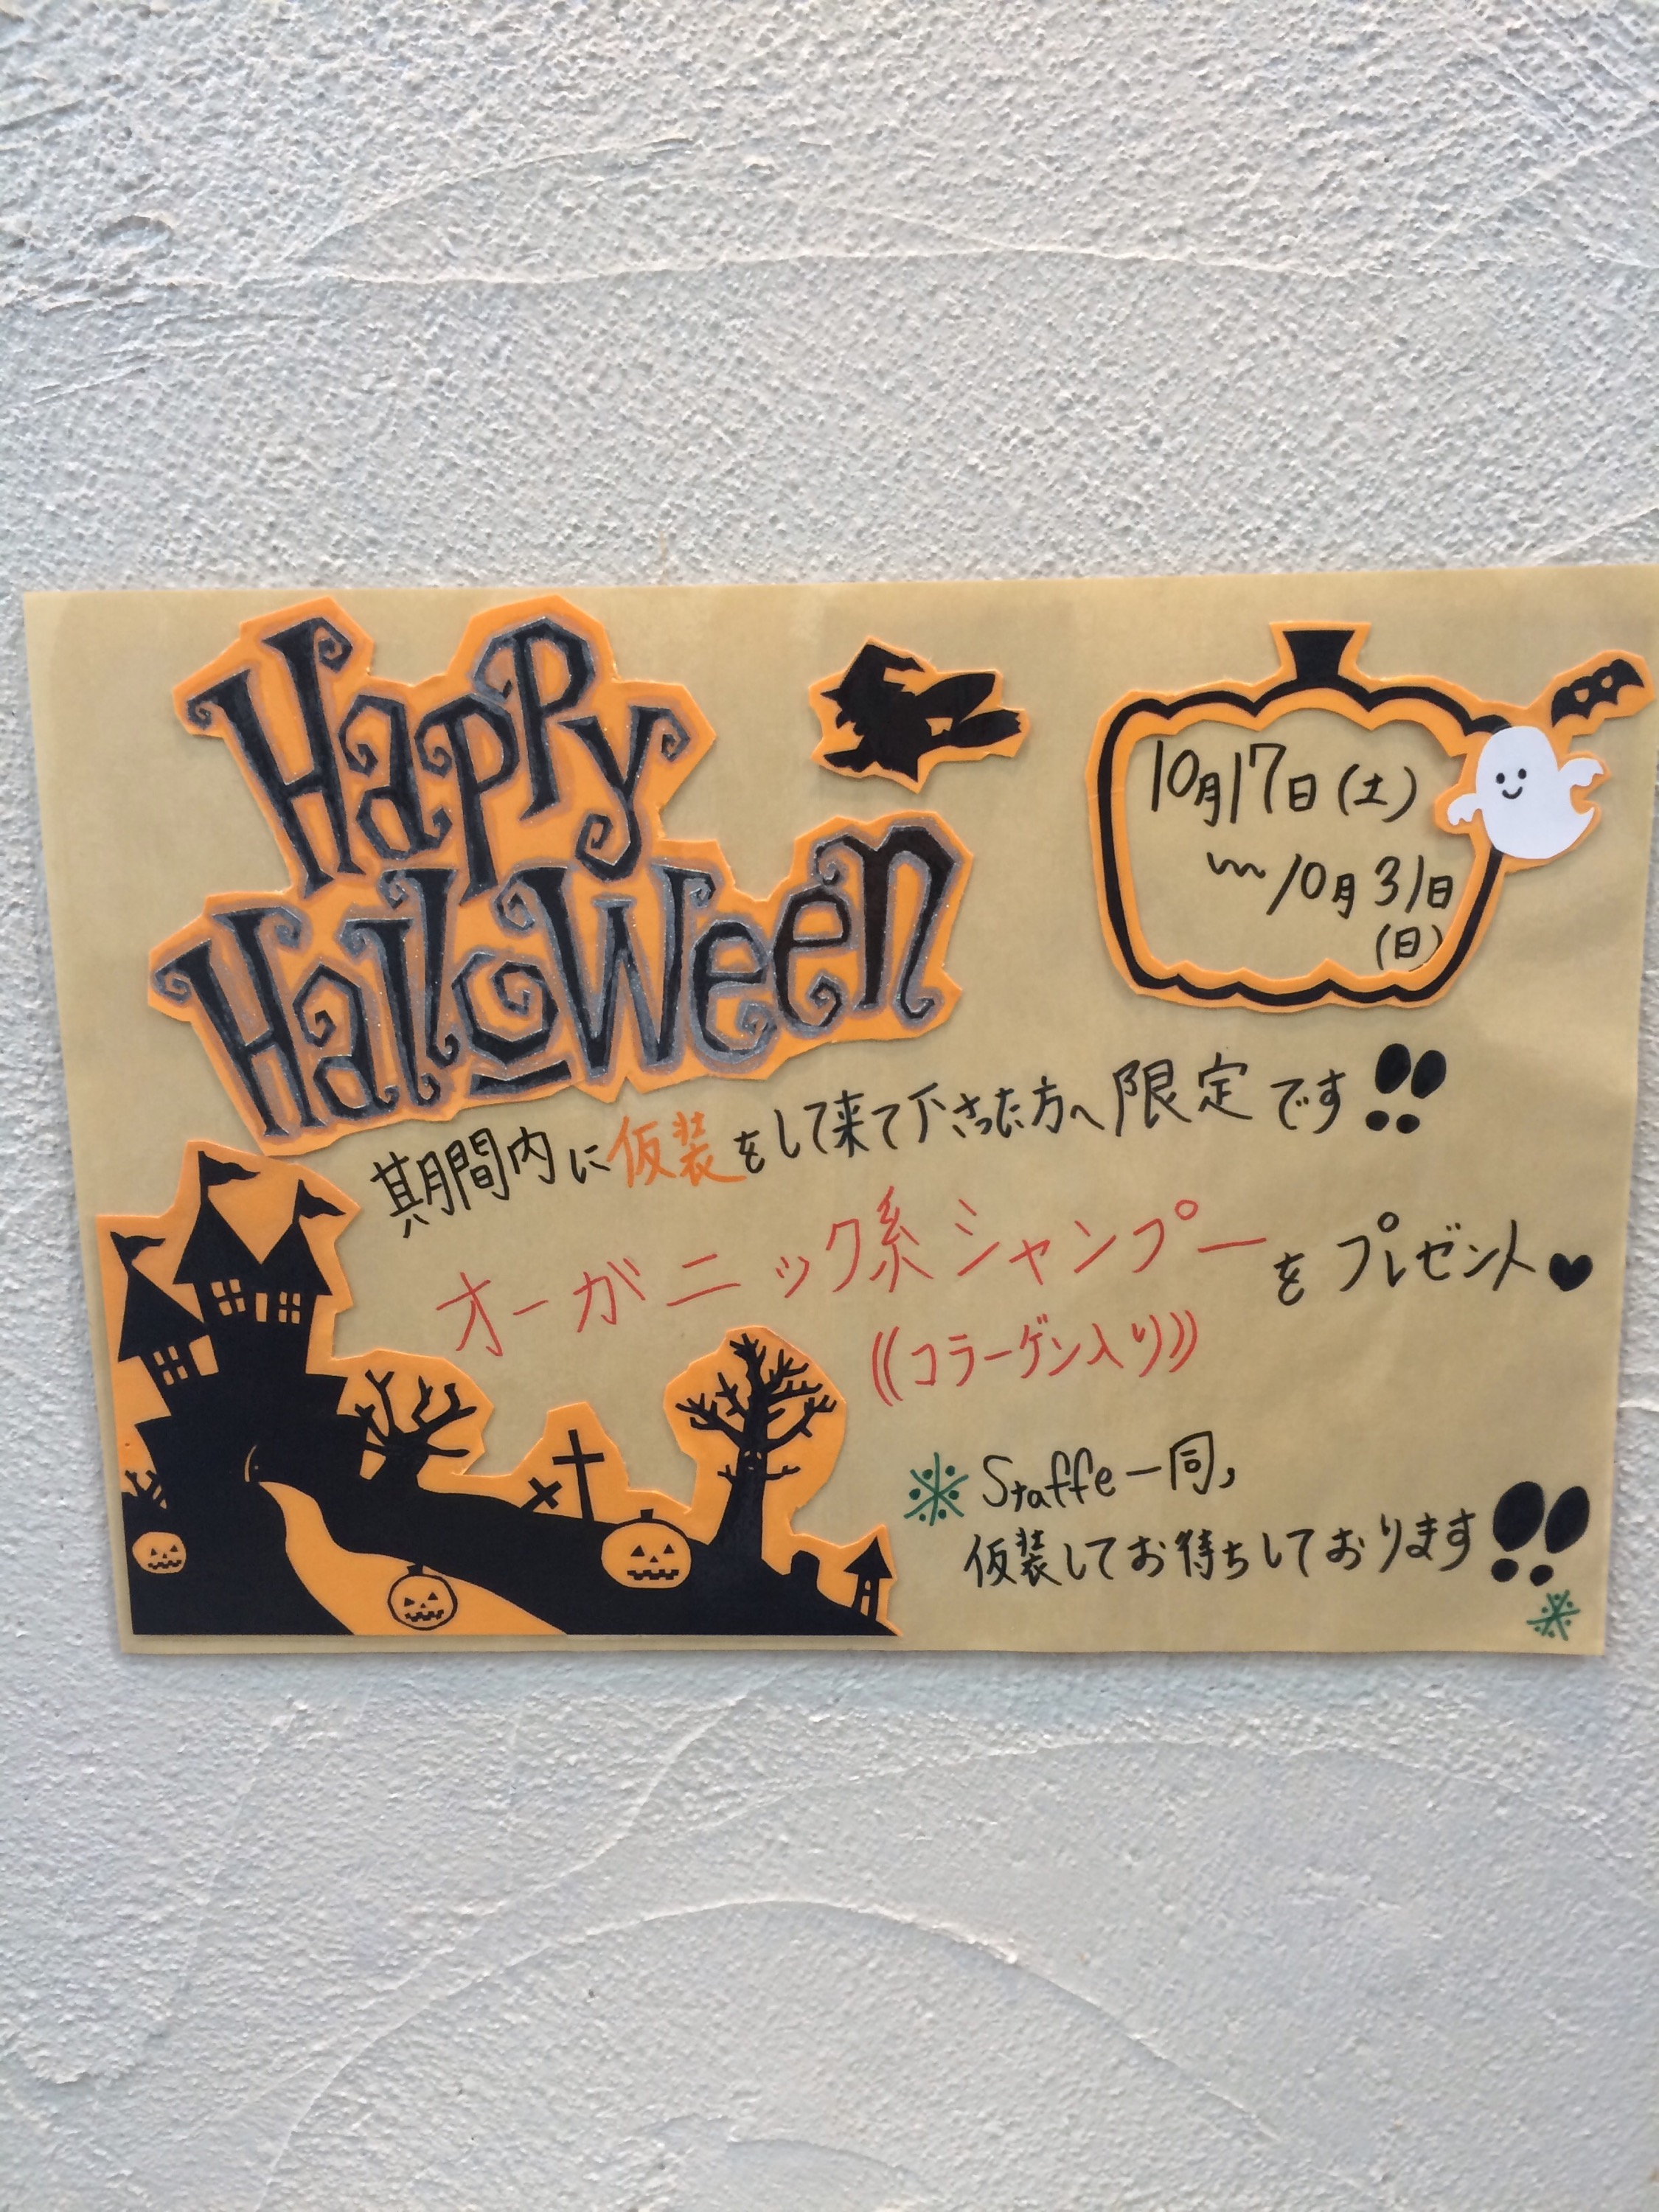 Happy
Halloween
10月17日(土)
〜10月31日
(日)
期間内に仮装をして来て下さった方へ限定です!!
オーガニック系シャンプーをプレゼント♥
((コラーゲン入り))
※Staffe一同,
仮装してお待ちしております!!
※